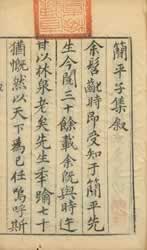 簡平子集叙
余髫齔時即受知于簡平先
生今閱三十餘載余既與時迕
甘以林泉老矣先生年踰七十
猶慨然以天下為已任嗚呼斯